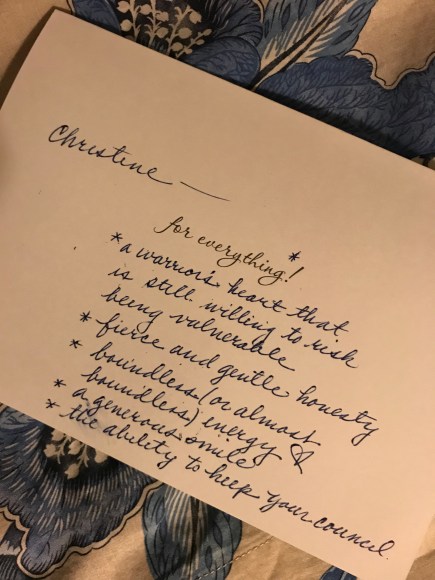 Christine —
for everything! *
* a warrior's heart that
is still willing to risk
being vulnerable
* fierce and gentle honesty
* boundless (or almost
boundless) energy &
* a generous smile
* the ability to keep your council.